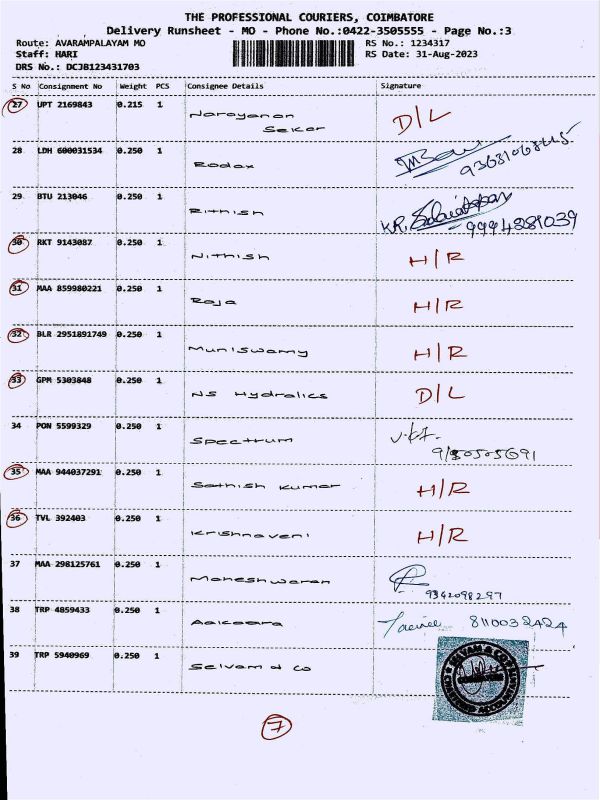 THE PROFESSIONAL COURIERS, COIMBATORE
Delivery Runsheet - MO - Phone No.:0422-3505555 - Page No.:3
Route: AVARAMPALAYAM MO RS No.: 1234317
Staff: HARI RS Date: 31-Aug-2023
DRS No.: DCJB123431703
S No Consignment No Weight PCS Consignee Details Signature
27 UPT 2169843 0.215 1 Narayanan D/L
Sekar
28 LDH 600031534 0.250 1 Rodax
29 BTU 213046 0.250 1 Rithish
9994889039
30 RKT 9143087 0.250 1 Nithish H/R
31 MAA 859980221 0.250 1 Roja H/R
32 BLR 2951891749 0.250 1 Muniswamy H/R
33 GPM 5303848 0.250 1 NS Hydralics D/L
34 PON 5599329 0.250 1 Spectrum
35 MAA 944037291 0.250 1 Sathish Kumar H/R
36 TVL 392403 0.250 1 Krishnaveni H/R
37 MAA 298125761 0.250 1 Maheshwaran
9342098297
38 TRP 4859433 0.250 1 Aalcoara 8110032424
39 TRP 5940969 0.250 1 Selvam & Co
SELVAM & CO
7